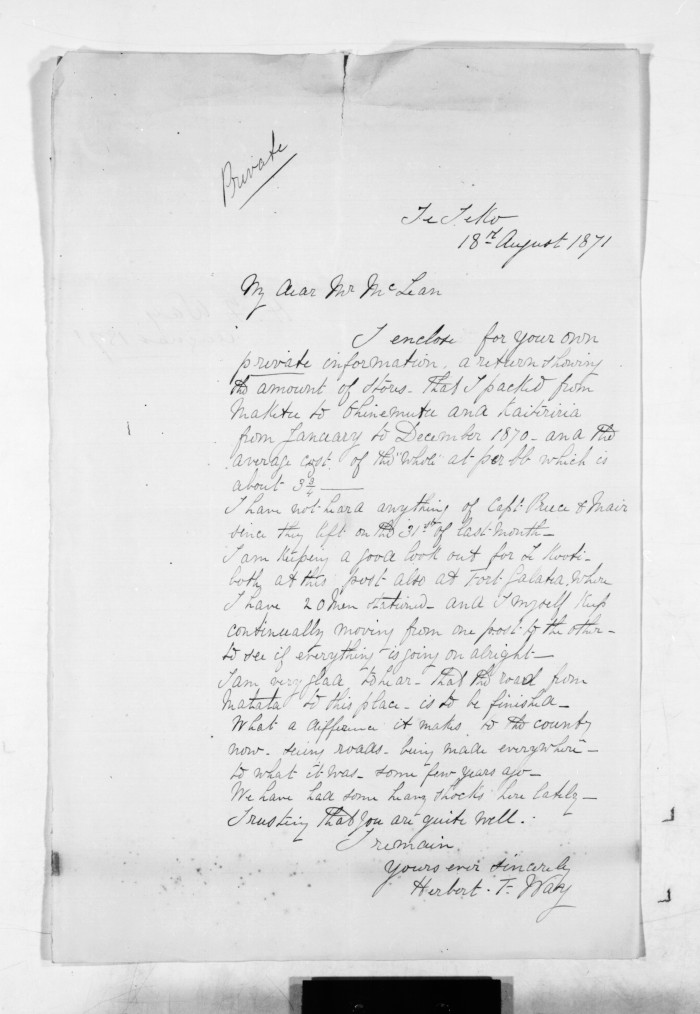 Private
Te Teko
18th August 1871
My dear Mr McLean
I enclose for your own
private information, a return showing
the amount of stores - that I packed from
Maketu to Ohinemutu and Kaitiriria
from January to December 1870 - and the
average cost of the "whole" at per lb which is
about 3 3/4
I have not heard anything of Capt Preece & Mair
since they left on the 31st of last month -
I am keeping a good look out for Te Kooti -
both at this post also at Fort Galatea, where
I have 20 men stationed - and I myself keep
continually moving from one post to the other -
to see if everything is going on alright -
I am very glad to hear - that the road from
Matata to this place - is to be finished -
What a difference it makes to the county
now - seeing roads - being made everywhere -
to what it was - some few years ago -
We have had some heavy shocks here lately -
Trusting that you are quite well.
I remain.
Yours ever sincerely
Herbert. F. Way